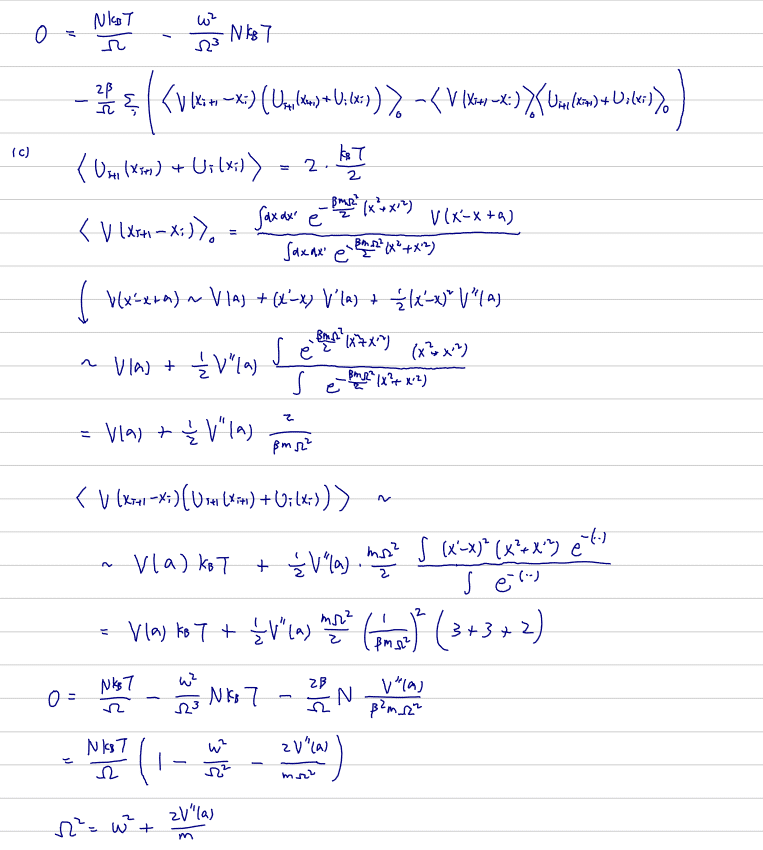 0 = \frac{Nk_BT}{Ω} - \frac{ω^2}{Ω^3} Nk_BT
- \frac{2β}{Ω} Σ_i ( ⟨V(x_{i+1}-x_i)(U_{i+1}(x_{i+1})+U_i(x_i))⟩_0 - ⟨V(x_{i+1}-x_i)⟩_0⟨U_{i+1}(x_{i+1})+U_i(x_i)⟩_0 )
(c) ⟨U_{i+1}(x_{i+1}) + U_i(x_i)⟩ = 2 · \frac{k_BT}{2}
⟨V(x_{i+1}-x_i)⟩_0 = \frac{∫dxdx' e^{-\frac{βmΩ^2}{2}(x^2+x'^2)} V(x'-x+a)}{∫dxdx' e^{-\frac{βmΩ^2}{2}(x^2+x'^2)}}
↓ V(x'-x+a) ~ V(a) + (x'-x) V'(a) + \frac{1}{2}(x'-x)^2 V''(a)
~ V(a) + \frac{1}{2} V''(a) \frac{∫ e^{-\frac{βmΩ^2}{2}(x^2+x'^2)} (x^2+x'^2)}{∫ e^{-\frac{βmΩ^2}{2}(x^2+x'^2)}}
= V(a) + \frac{1}{2} V''(a) \frac{2}{βmΩ^2}
⟨V(x_{i+1}-x_i)(U_{i+1}(x_{i+1})+U_i(x_i))⟩ ~
~ V(a) k_BT + \frac{1}{2} V''(a) · \frac{mΩ^2}{2} \frac{∫ (x'-x)^2 (x^2+x'^2) e^{-(..)}}{∫ e^{-(...)}}
= V(a) k_BT + \frac{1}{2} V''(a) \frac{mΩ^2}{2} (\frac{1}{βmΩ^2})^2 (3+3+2)
0 = \frac{Nk_BT}{Ω} - \frac{ω^2}{Ω^3} Nk_BT - \frac{2β}{Ω} N \frac{V''(a)}{β^2mΩ^2}
= \frac{Nk_BT}{Ω} ( 1 - \frac{ω^2}{Ω^2} - \frac{2V''(a)}{mΩ^2} )
Ω^2 = ω^2 + \frac{2V''(a)}{m}